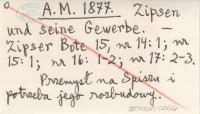 A. M. 1877. Zipsen
und seine Gewerbe. —
Zipser Bote 15, nr 14: 1; nr
15: 1; nr 16: 1-2; nr 17: 2-3.
Przemysł na Spiszu i
potrzeba jego rozbudowy.